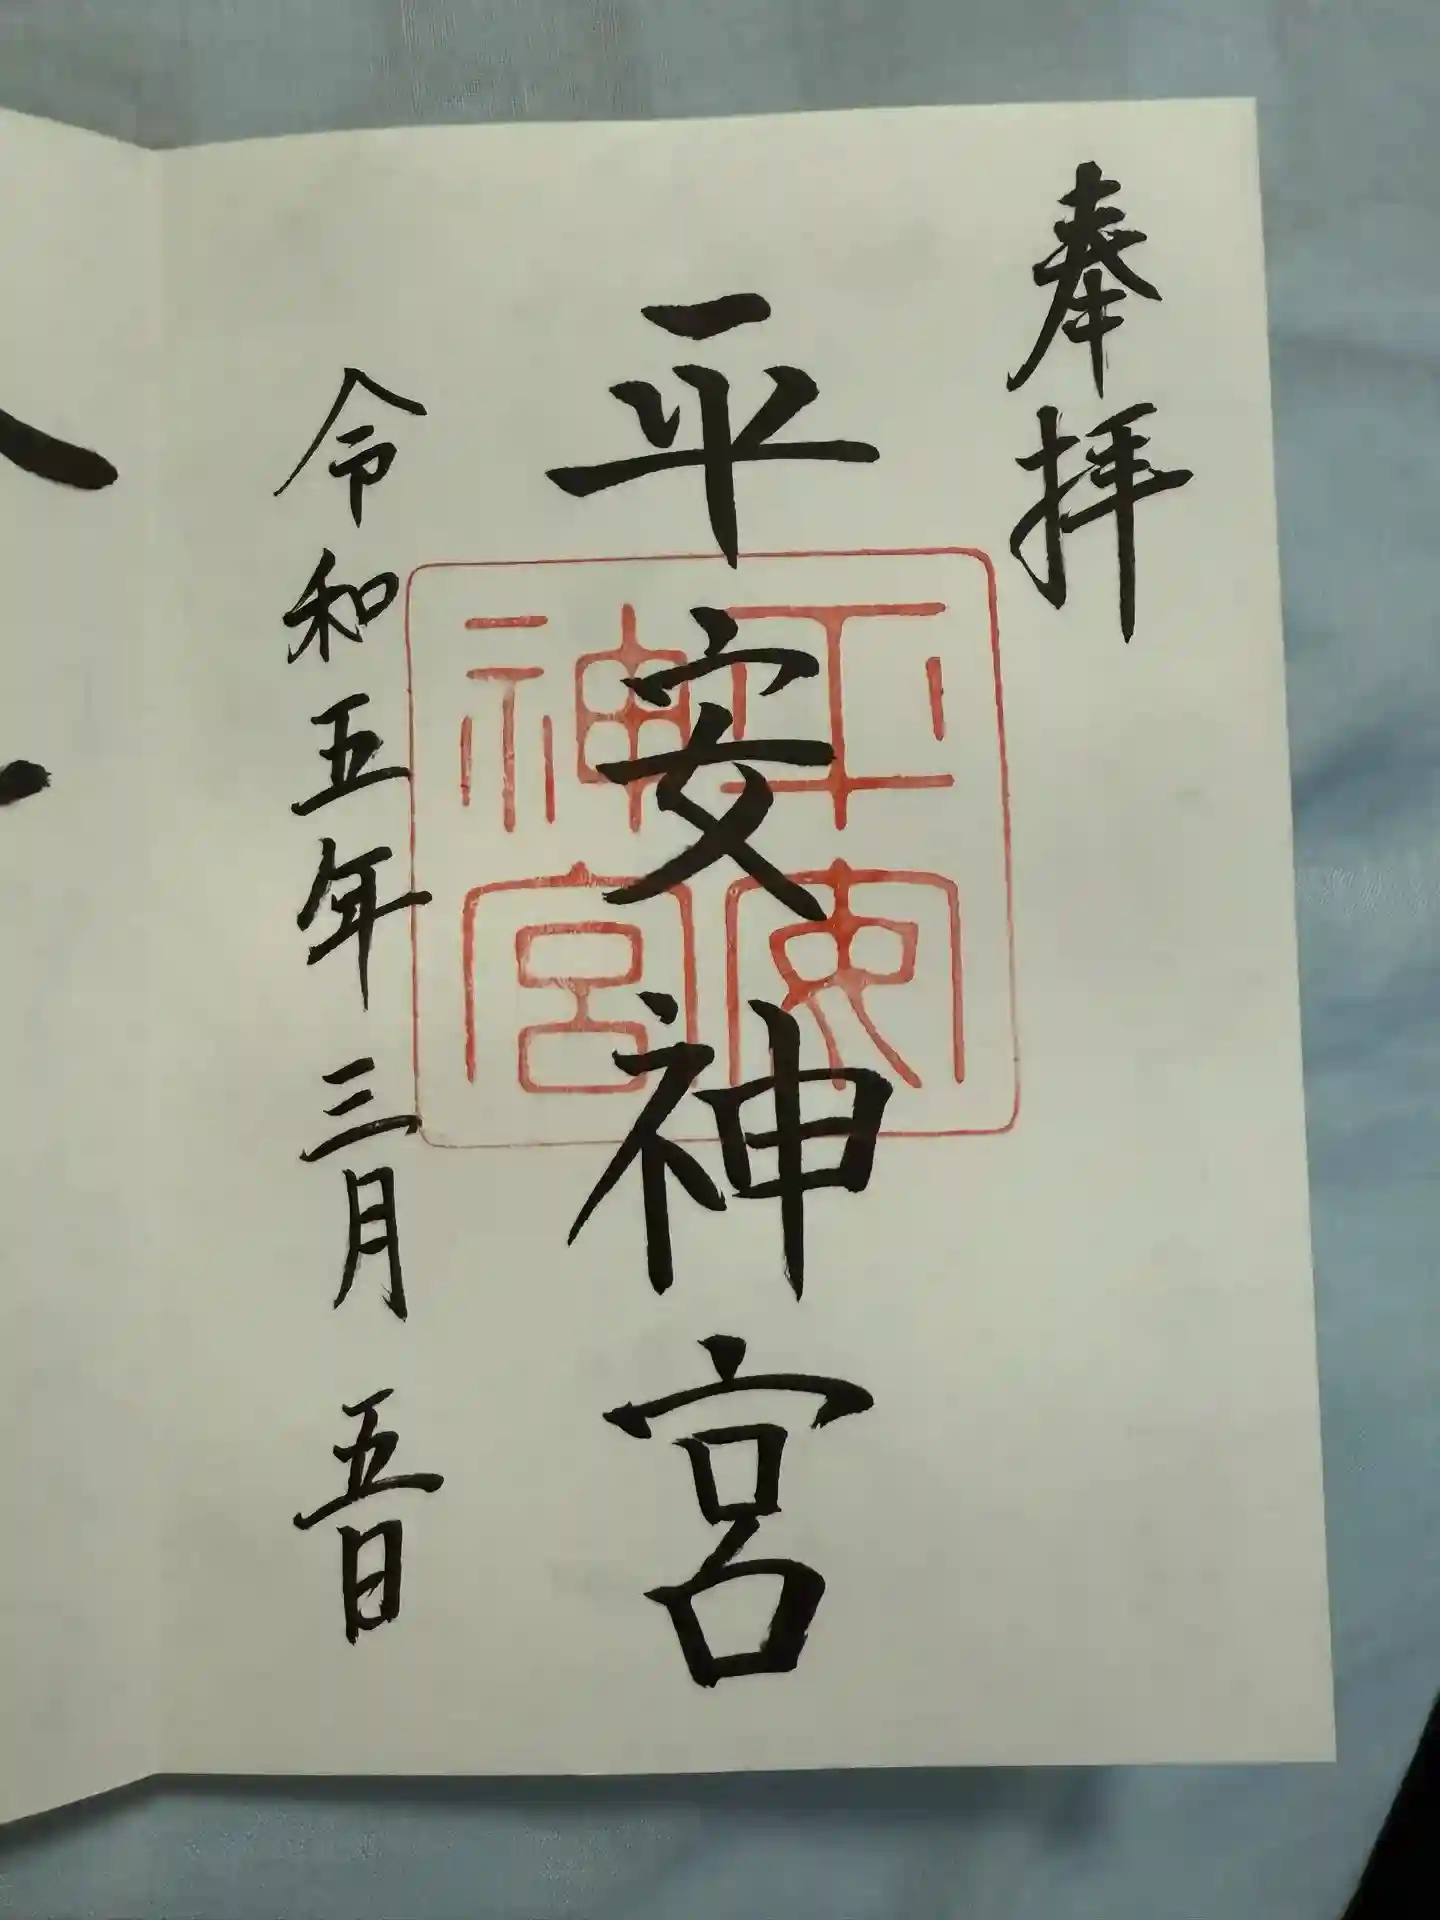 奉拝
平安神宮
平安神宮
令和五年三月五日